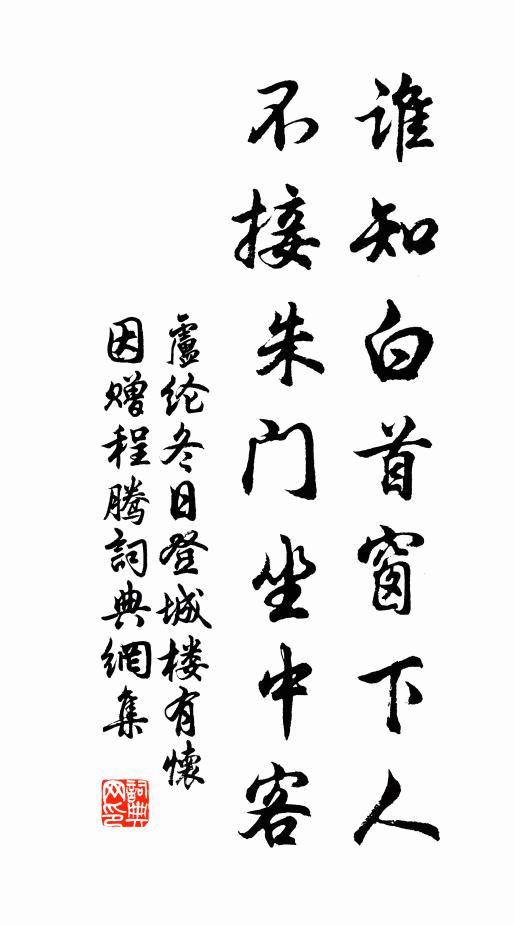 谁知白首窗下人
不接朱门坐中客
盧纶冬日登城楼有懷
因赠程騰詞典網集
詞典
网印